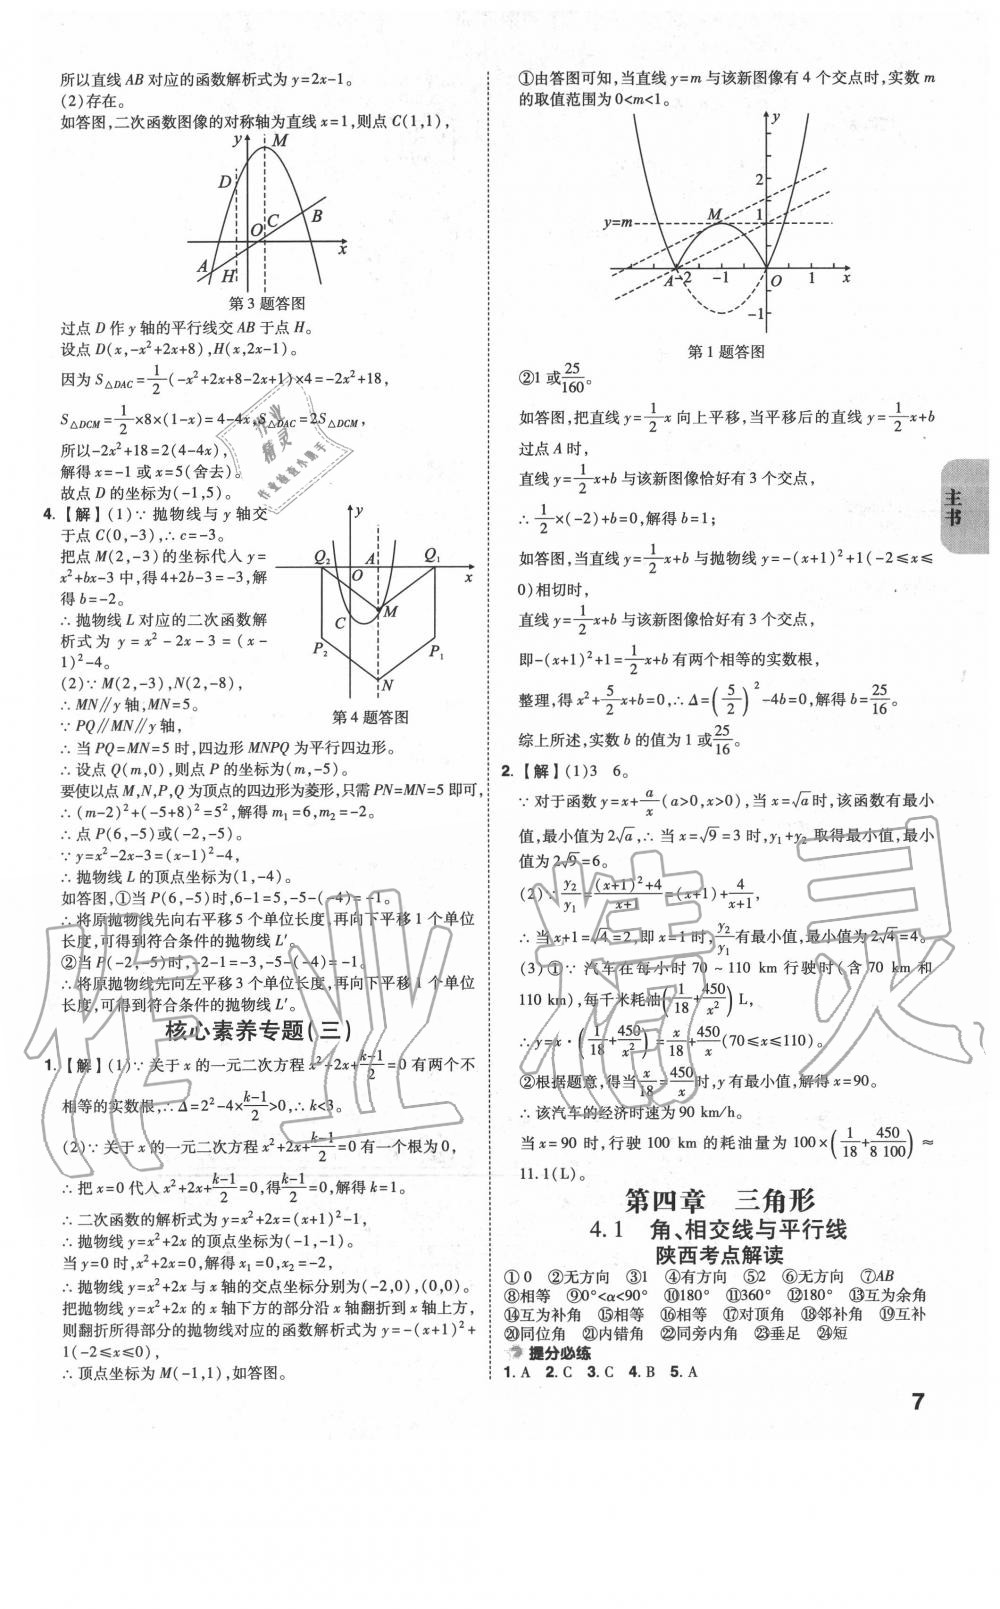 所以直线 AB 对应的函数解析式为 y=2x-1。
(2)存在。
如答图,二次函数图像的对称轴为直线 x=1,则点 C(1,1),
y
M
D
C
B
O
x
A
H
第 3 题答图
过点 D 作 y 轴的平行线交 AB 于点 H。
设点 D(x,-x²+2x+8),H(x,2x-1)。
因为 S△DAC=1/2(-x²+2x+8-2x+1)×4=-2x²+18,
S△DCM=1/2×8×(1-x)=4-4x,S△DAC=2S△DCM,
所以-2x²+18=2(4-4x),
解得 x=-1 或 x=5(舍去)。
故点 D 的坐标为(-1,5)。
4.【解】(1)∵ 抛物线与 y 轴交
于点 C(0,-3),∴ c=-3。
把点 M(2,-3)的坐标代入 y=
x²+bx-3 中,得 4+2b-3=-3,解
得 b=-2。
∴ 抛物线 L 对应的二次函数解
析式为 y=x²-2x-3=(x-
1)²-4。
(2)∵ M(2,-3),N(2,-8),
∴ MN∥y 轴,MN=5。
∵ PQ∥MN∥y 轴,
y
Q₂
A
Q₁
O
x
C
M
P₂
P₁
N
第 4 题答图
∴ 当 PQ=MN=5 时,四边形 MNPQ 为平行四边形。
∴ 设点 Q(m,0),则点 P 的坐标为(m,-5)。
要使以点 M,N,P,Q 为顶点的四边形为菱形,只需 PN=MN=5 即可,
∴ (m-2)²+(-5+8)²=5²,解得 m₁=6,m₂=-2。
∴ 点 P(6,-5)或(-2,-5)。
∵ y=x²-2x-3=(x-1)²-4,
∴ 抛物线 L 的顶点坐标为(1,-4)。
如答图,①当 P(6,-5)时,6-1=5,-5-(-4)=-1。
∴ 将原抛物线先向右平移 5 个单位长度,再向下平移 1 个单位
长度,可得到符合条件的抛物线 L′。
②当 P(-2,-5)时,-2-1=-3,-5-(-4)=-1。
∴ 将原抛物线先向左平移 3 个单位长度,再向下平移 1 个单位
长度,可得到符合条件的抛物线 L′。
核心素养专题(三)
1.【解】(1)∵ 关于 x 的一元二次方程 x²+2x+(k-1)/2=0 有两个不
相等的实数根,∴ Δ=2²-4×(k-1)/2>0,∴ k<3。
(2)∵ 关于 x 的一元二次方程 x²+2x+(k-1)/2=0 有一个根为 0,
∴ 把 x=0 代入 x²+2x+(k-1)/2=0,得(k-1)/2=0,解得 k=1。
∴ 二次函数的解析式为 y=x²+2x=(x+1)²-1,
∴ 抛物线 y=x²+2x 的顶点坐标为(-1,-1)。
当 y=0 时,x²+2x=0,解得 x₁=0,x₂=-2。
∴ 抛物线 y=x²+2x 与 x 轴的交点坐标分别为(-2,0),(0,0)。
把抛物线 y=x²+2x 的 x 轴下方的部分沿 x 轴翻折到 x 轴上方,
则翻折所得部分的抛物线对应的函数解析式为 y=-(x+1)²+
1(-2≤x≤0),
∴ 顶点坐标为 M(-1,1),如答图。
①由答图可知,当直线 y=m 与该新图像有 4 个交点时,实数 m
的取值范围为 0<m<1。
y
2
M
1
y=m
A
-2
-1
O
1
x
-1
第 1 题答图
②1 或 25/160。
如答图,把直线 y=1/2 x 向上平移,当平移后的直线 y=1/2 x+b
过点 A 时,
直线 y=1/2 x+b 与该新图像恰好有 3 个交点,
∴ 1/2×(-2)+b=0,解得 b=1;
如答图,当直线 y=1/2 x+b 与抛物线 y=-(x+1)²+1(-2≤x≤
0)相切时,
直线 y=1/2 x+b 与该新图像恰好有 3 个交点,
即-(x+1)²+1=1/2 x+b 有两个相等的实数根,
整理,得 x²+5/2 x+b=0,∴ Δ=(5/2)²-4b=0,解得 b=25/16。
综上所述,实数 b 的值为 1 或25/16。
2.【解】(1)3 6。
∵ 对于函数 y=x+a/x(a>0,x>0),当 x=√a时,该函数有最小
值,最小值为 2√a,∴ 当 x=√9=3 时,y₁+y₂ 取得最小值,最小
值为 2√9=6。
(2)∵ y₂/y₁=((x+1)²+4)/(x+1)=(x+1)+4/(x+1),
∴ 当 x+1=√4=2,即 x=1 时,y₂/y₁有最小值,最小值为 2√4=4。
(3)①∵ 汽车在每小时 70~110 km 行驶时(含 70 km 和
110 km),每千米耗油(1/18+450/x²)L,
∴ y=x·(1/18+450/x²)=x/18+450/x(70≤x≤110)。
②根据题意,得当x/18=450/x时,y 有最小值,解得 x=90。
∴ 该汽车的经济时速为 90 km/h。
当 x=90 时,行驶 100 km 的耗油量为 100×(1/18+450/8 100)≈
11.1(L)。
第四章 三角形
4.1 角、相交线与平行线
陕西考点解读
①0 ②无方向 ③1 ④有方向 ⑤2 ⑥无方向 ⑦AB
⑧相等 ⑨0°<α<90° ⑩180° ⑪360° ⑫180° ⑬互为余角
⑭互为补角 ⑮相等 ⑯相等 ⑰对顶角 ⑱邻补角 ⑲互补
⑳同位角 ㉑内错角 ㉒同旁内角 ㉓垂足 ㉔短
提分必练
1. A 2. C 3. C 4. B 5. A
主书
7
作业精灵
作业精灵
作业检查小助手